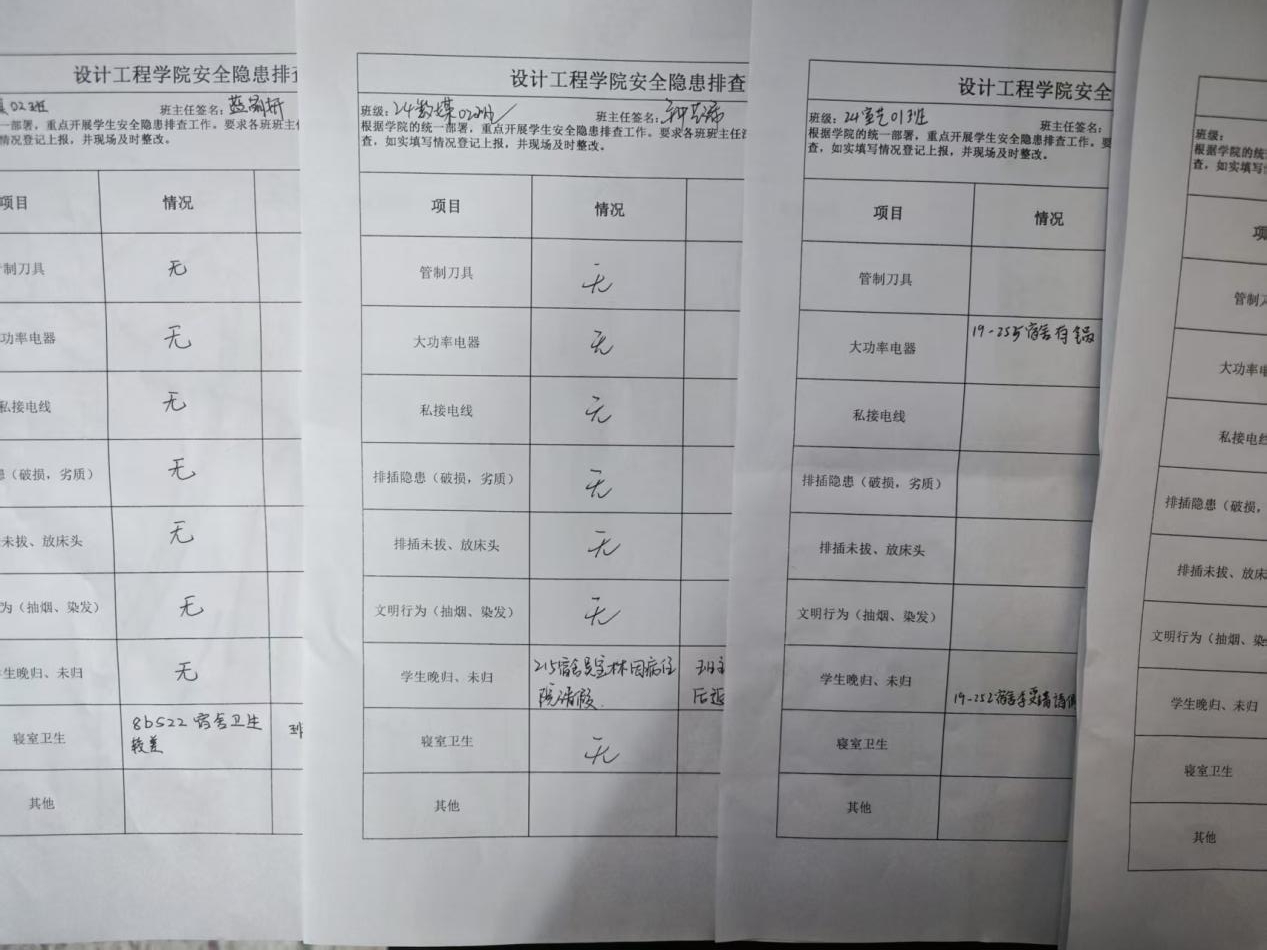 设计工程学院安全隐患排查
02班
班主任签名:
一部署,重点开展学生安全隐患排查工作。要求各班班主任
情况登记上报,并现场及时整改。
项目 情况
制刀具 无
功率电器 无
私接电线 无
患(破损,劣质) 无
未拔、放床头 无
为(抽烟、染发) 无
生晚归、未归 无
寝室卫生 8b522宿舍卫生
较差
班
其他
设计工程学院安全隐患排查
班级:24数媒02班 班主任签名:
根据学院的统一部署,重点开展学生安全隐患排查工作。要求各班班主任
查,如实填写情况登记上报,并现场及时整改。
项目 情况
管制刀具 无
大功率电器 无
私接电线 无
排插隐患(破损,劣质) 无
排插未拔、放床头 无
文明行为(抽烟、染发) 无
学生晚归、未归 215宿舍 林因病住 班主
院请假 后返
寝室卫生 无
其他
设计工程学院安全
班级:24室艺01班 班主任签名:
根据学院的统一部署,重点开展学生安全隐患排查工作。要
查,如实填写情况登记上报,并现场及时整改。
项目 情况
管制刀具
大功率电器 19-255宿舍有锅
私接电线
排插隐患(破损,劣质)
排插未拔、放床头
文明行为(抽烟、染发)
学生晚归、未归 19-252宿舍李 请假
寝室卫生
其他
班级:
根据学院的统
查,如实填写情
项
管制刀
大功率电
私接电线
排插隐患(破损,
排插未拔、放床
文明行为(抽烟、染
学生晚归、未归
寝室卫生
其他